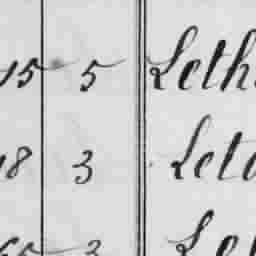 15 5 Leth
18 3 Leto
3 Le